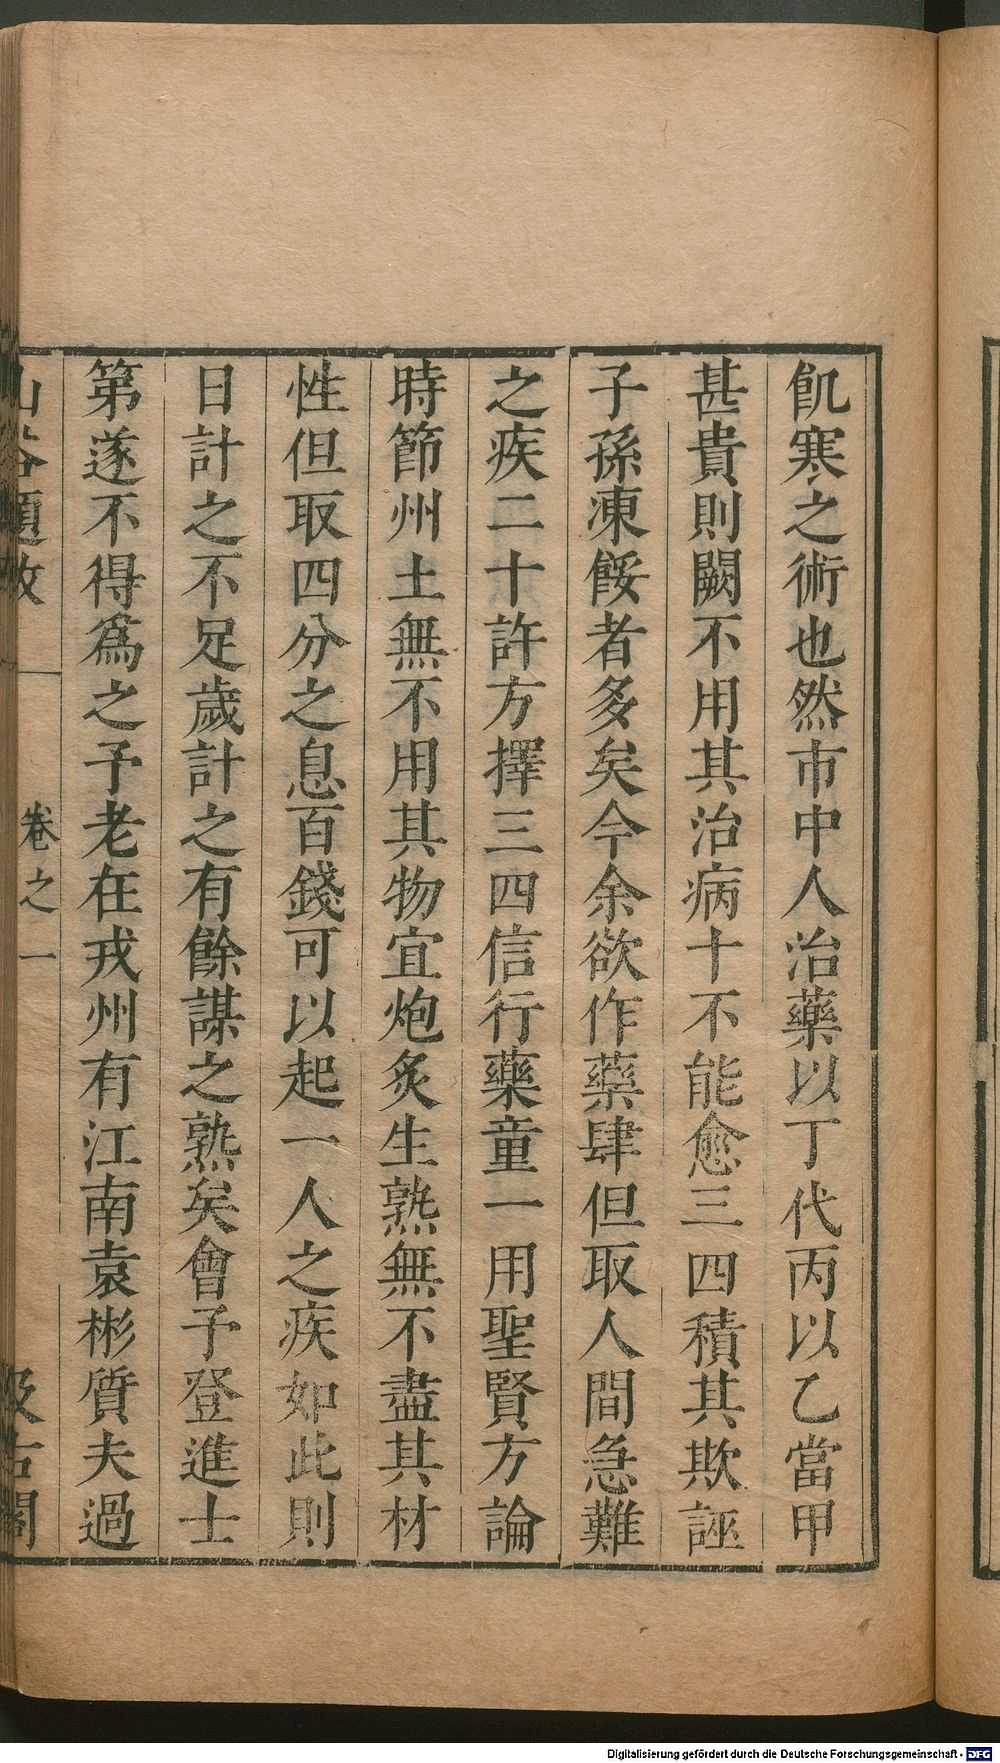 飢寒之術也然市中人治藥以丁代丙以乙當甲
甚貴則闕不用其治病十不能愈三四積其欺誣
子孫凍餒者多矣今余欲作藥肆但取人間急難
之疾二十許方擇三四信行藥童一用聖賢方論
時節州土無不用其物宜炮炙生熟無不盡其材
性但取四分之息百錢可以起一人之疾如此則
日計之不足歲計之有餘謀之熟矣會予登進士
第遂不得爲之予老在戎州有江南袁彬質夫過
山谷題跋 卷之一 汲古閣
Digitalisierung gefördert durch die Deutsche Forschungsgemeinschaft - DFG